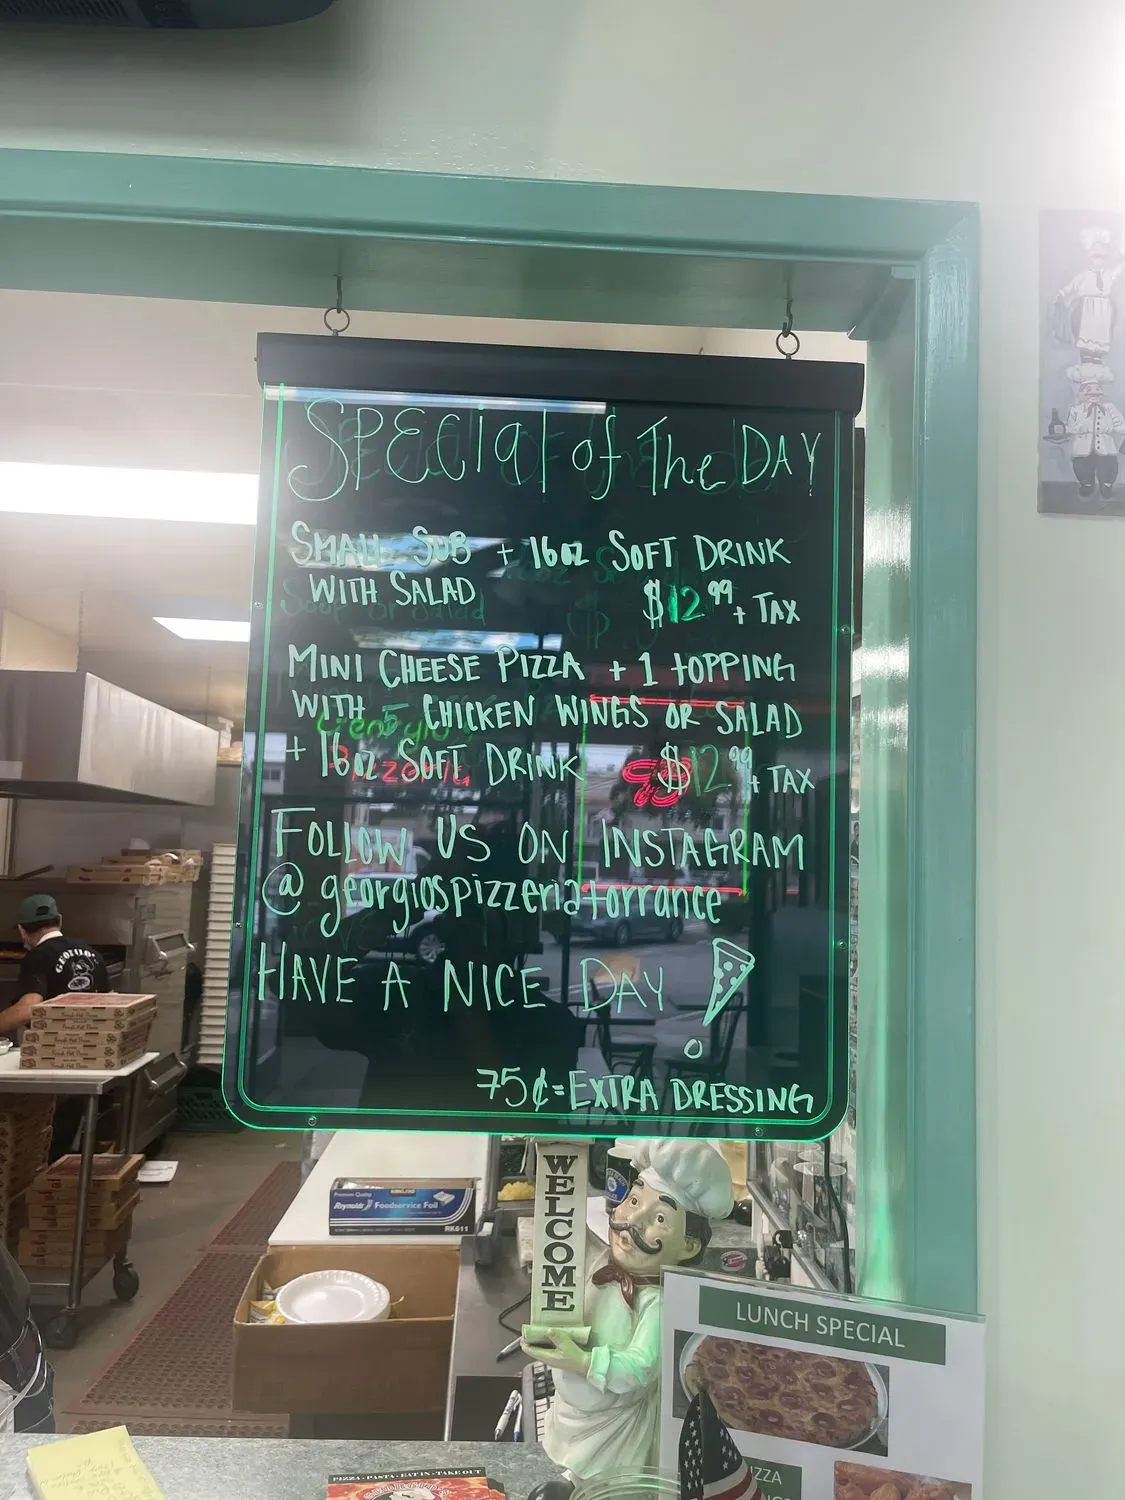 SPECial of The DAY
SMALL SUB + 16oz SOFT DRINK
WITH SALAD $12.99 + TAX
MINI CHEESE PIZZA + 1 tOPPING
WITH 5 CHICKEN WINGS OR SALAD
+ 16oz SOFT DRINK $12.99 + TAX
FOLLOW US ON INSTAGRAM
@georgiospizzeriatorrance
HAVE A NICE DAY
75¢=EXTRA DRESSING
WELCOME
Premium Quality
KIRKLAND
Reynolds Foodservice Foil
RK611
LUNCH SPECIAL
PIZZA-PASTA-EAT IN-TAKE OUT